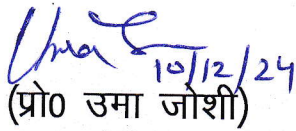 10/12/24
(प्रो0 उमा जोशी)